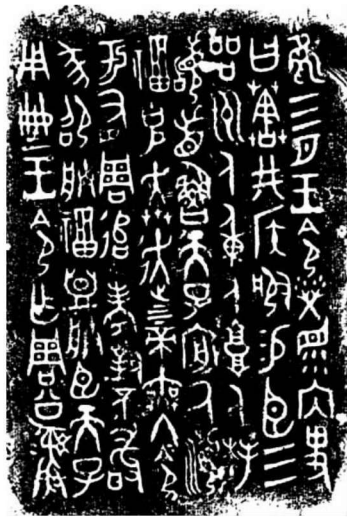 隹三月王令榮眔內史
曰𦵯井侯服易臣三
品州人重人庸人拜
稽首魯天子𠭯厥瀕
福克奔走上下帝無冬令
于有周追考對不敢
㒸邵朕福盟朕臣天子
用典王令乍周公彝